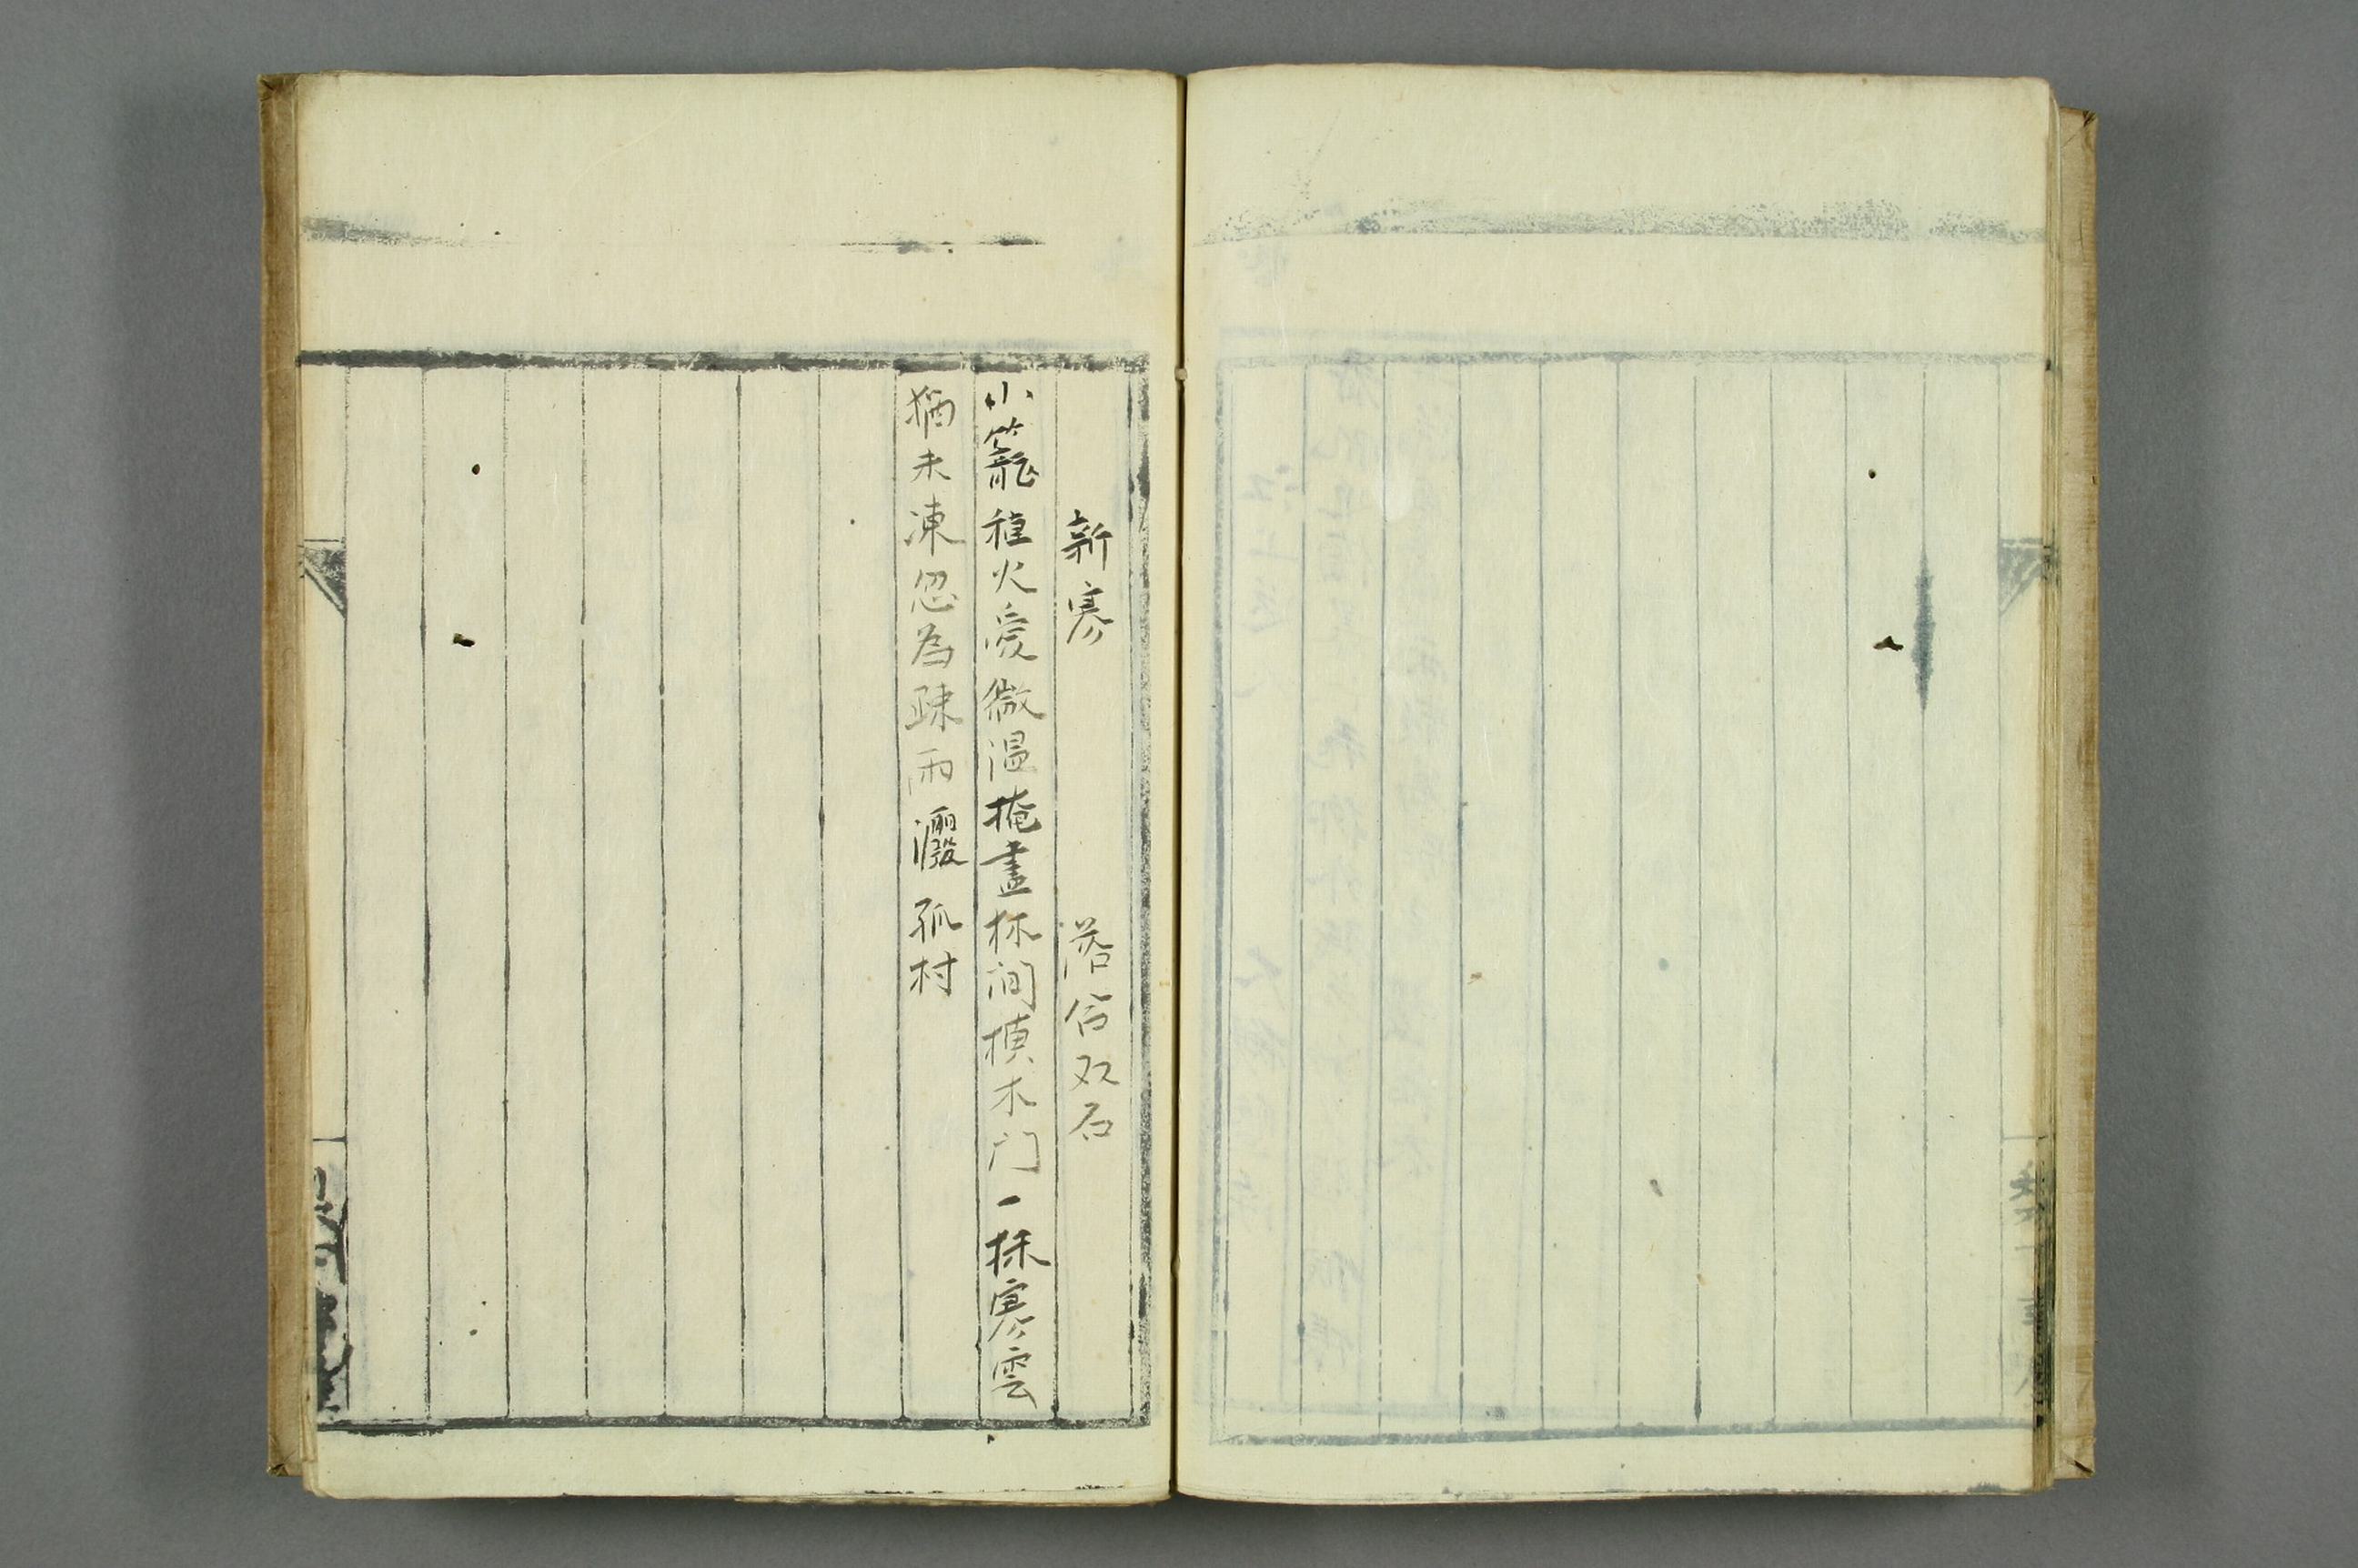 新寒 落合双石
小籠種火愛微温掩盡林間橫木門一抹寒雲
猶未凍忽為疎雨灑孤村